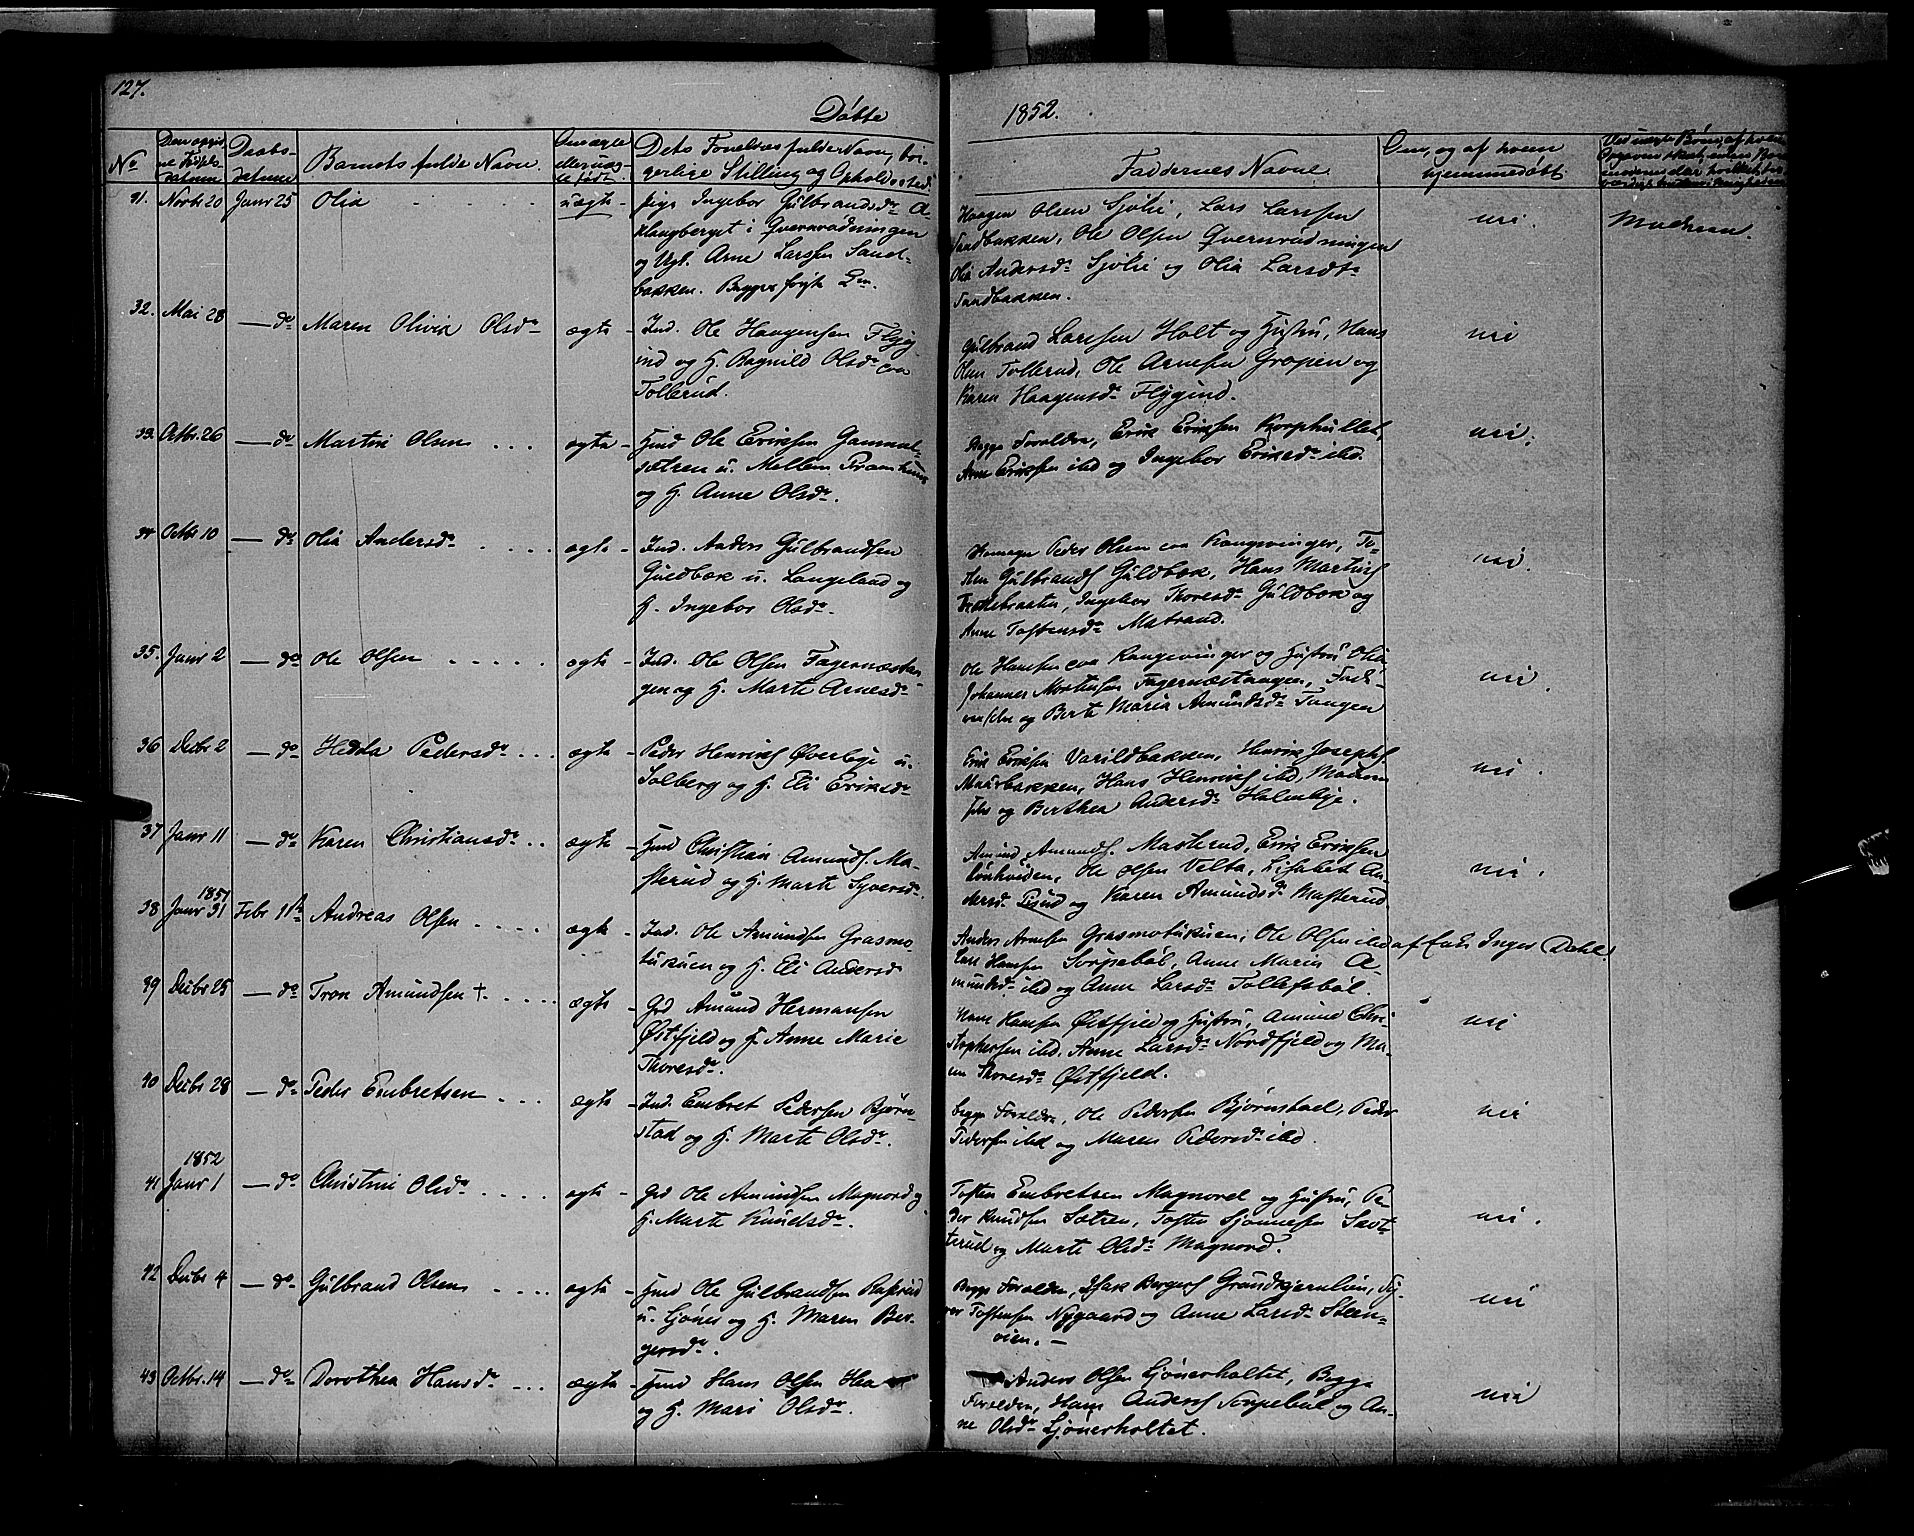 127.
Døbte
1852.
No
Daabs-
datum
Barnets fulde Navn.
Dets Forældres fulde Navn, bor-
gerlige Stilling og Opholdssted.
Faddernes Navne
Om, og af hvem
hjemmedøbt
31. Novbr 20 Janr 25 Olia uægte pige Ingebor Gulbrandsdr A-
klangberget i Qvernrødningen
og Ugk. Arne Larssen Sand-
bakken. Begges første Lm.
Haagen Olsen Sjølie, Lars Larssen
Sandbakken, Ole Olsen Qvernrødningen
Olia Andersdr Sjølie og Olia Larsdr
Sandbakken.
nei. Moderen.
32. Mai 28 — do Maren Olivia Olsdr ægte Ind. Ole Haagensen Flyg-
ind og H. Ragnild Olsdr
Tollerud.
Gulbrand Larssen Holt og Hustru, Hans
Olsen Tollerud, Ole Arnesen Gropen og
Karen Haagensdr Flygind.
nei
33. Octbr. 26 — do Martin Olsen ægte Hmd Ole Eriksen Gammel-
sætren u. Mellem
og H. Anne Olsdr.
Begge Forældre, Erik Eriksen Korphullet,
Arne Eriksen ibd og Ingebor Eriksdr ibd.
nei.
34 Octbr 10 — do Olia Andersdr ægte Ind. Anders Gulbrandsen
Guldbæk u. Langeland og
H. Ingebor Olsdr.
Peder Olsen Kongsvinger, To-
sten Gulbrands Guldbæk, Hans Martins
Ingebor Thoresdr Guldbæk og
Anne Tostensdr Matrand.
nei.
35. Janr 2 — do Ole Olsen ægte Ind. Ole Olsen Fagernæsta-
gen og H. Marte Arnesdr
Ole Hansen Kongsvinger og Hustru Olia,
Johannes Mortensen Fagernæstangen,
og Berte Maria Amundsdr Tangen
nei.
36 Decbr 2 — do Hedda Pedersdr ægte Peder Henriks Øverbye u.
Solberg og H. Eli Eriksdr
Erik Eriksen Varildbakken, Henrik Josephs
Maurbakken, Hans Henriks ibd,
og Berthea Andersdr Holenbye.
nei.
37 Janr 11 — do Karen Christiansdr ægte Hmd Christian Amunds. Ma-
sterud og H. Marte Syversdr.
Amund Amunds. Masterud, Erik Eriksen
Ole Olsen Velta, Lisabet An-
dersdr og Karen Amundsdr Masterud
nei.
1851
38 Janr 31 Febr 1ste Andreas Olsen ægte Ind. Ole Amundsen Grasmo-
tukuen og H. Eli Andersdr
Anders Arnesen Grasmotukuen, Ole Olsen ibd
Lars Hansen Sorpebøl, Anne Maria A-
mundsdr ibd og Anne Larsdr Tollefsbøl.
af Enke Inger Dahl.
39 Decbr 25 — do Tron Amundsen † ægte Grd Amund Hermansen
Østfjeld og H. Anne Marie
Thoresdr.
Hans Hansen Østfjeld og Hustru, Amund Chri-
stophersen ibd. Anne Larsdr Nordfjeld og Ma-
ren Thoresdr Østfjeld.
nei
40 Decbr 28 — do Peder Embretsen ægte Ind. Embret Pedersen Bjørn-
stad og H. Marte Olsdr.
begge Forældre, Ole Pedersen Bjørnstad, Peder
Pedersen ibd og Maren Pedersdr ibd.
nei
1852
41 Janr 1 — do Christine Olsdr ægte Grd Ole Amundsen Magnord og
H. Marte Knudsdr.
Tosten Embretsen Magnord og Hustru, Pe-
der Knudsen Sætren, Tosten Sjønnesen Sæt-
terud og Marte Olsdr Magnord.
nei.
42 Decbr 4 — do Gulbrand Olsen ægte Hmd Ole Gulbrandsen Rasrud
u. Ljøner og H. Maren Ber-
gersdr.
Begge Forældre, Isak Bergers Grundtjernlien, Sy-
ver Tostensen Nygaard og Anne Larsdr Steen-
vien. —
nei
43 Octbr. 14 — do Dorothea Hansdr ægte Hmd Hans Olsen Haa
og H. Mari Olsdr.
Anders Olsen Ljønerholtet, Begge
Forældre, Hans Anders Sorpebøl og An-
ne Olsdr Ljønerholtet.
nei